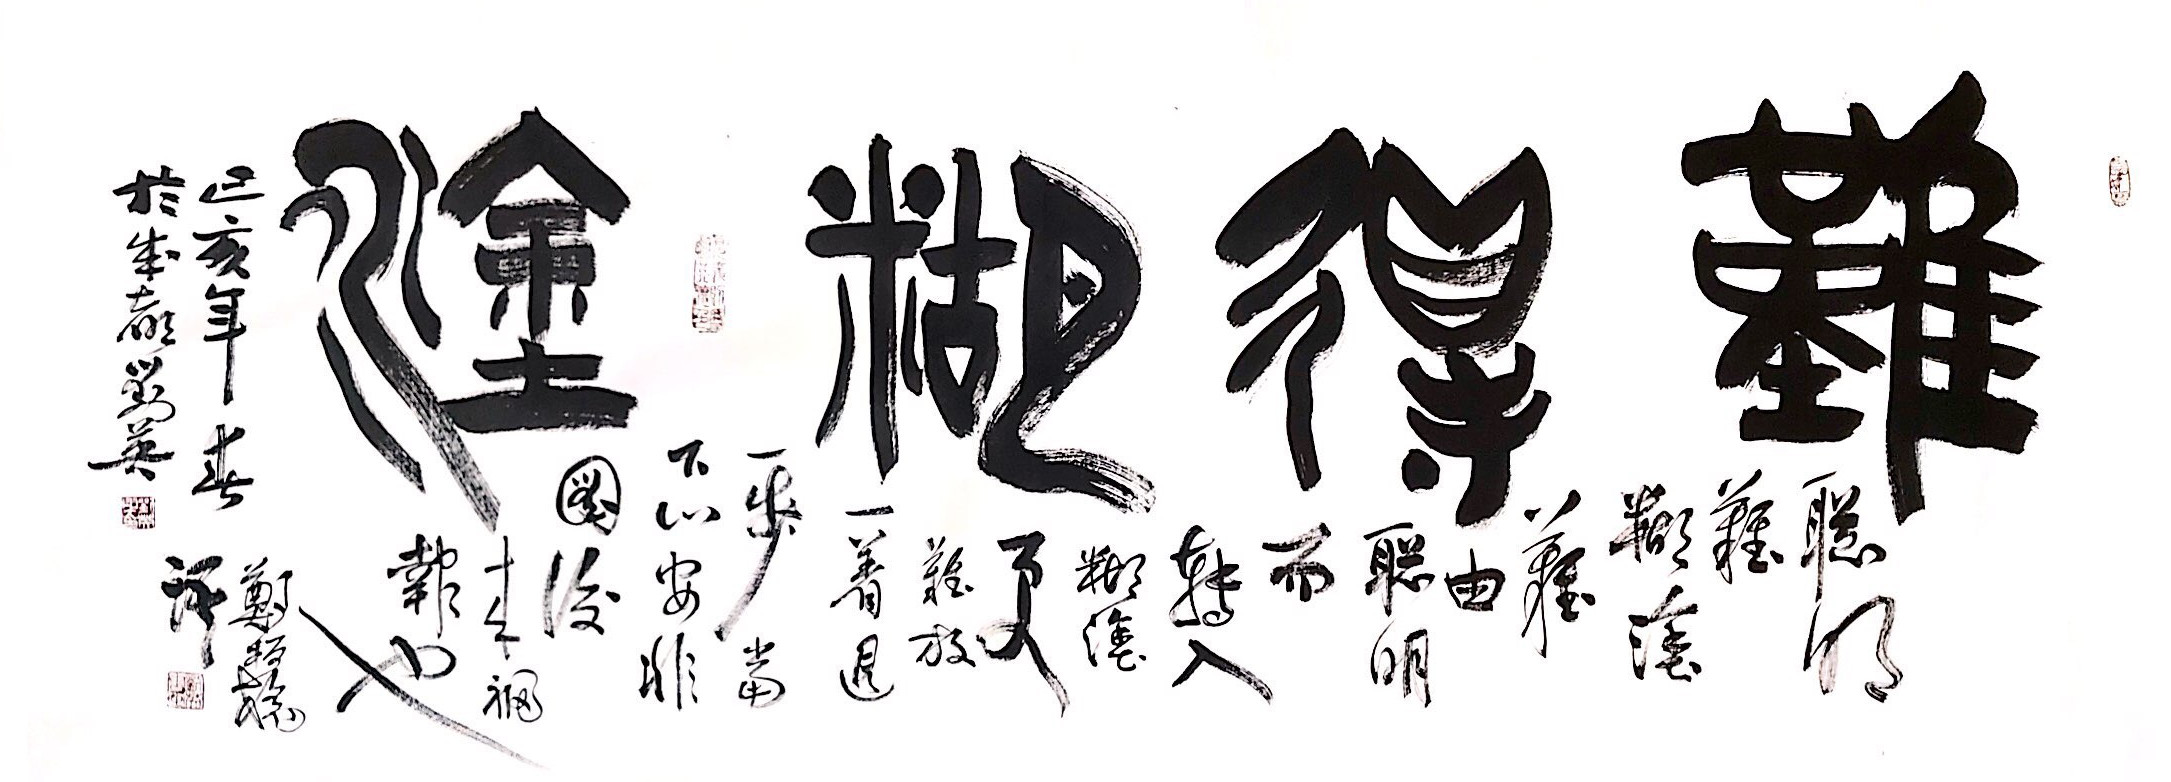 難得糊塗
聪明
難
糊塗
難
由
聪明
而
转入
糊塗
更
難放
一着退
一步當
下心安非
圖後
来福
報也
鄭板橋
語
己亥年春
於成都劉英